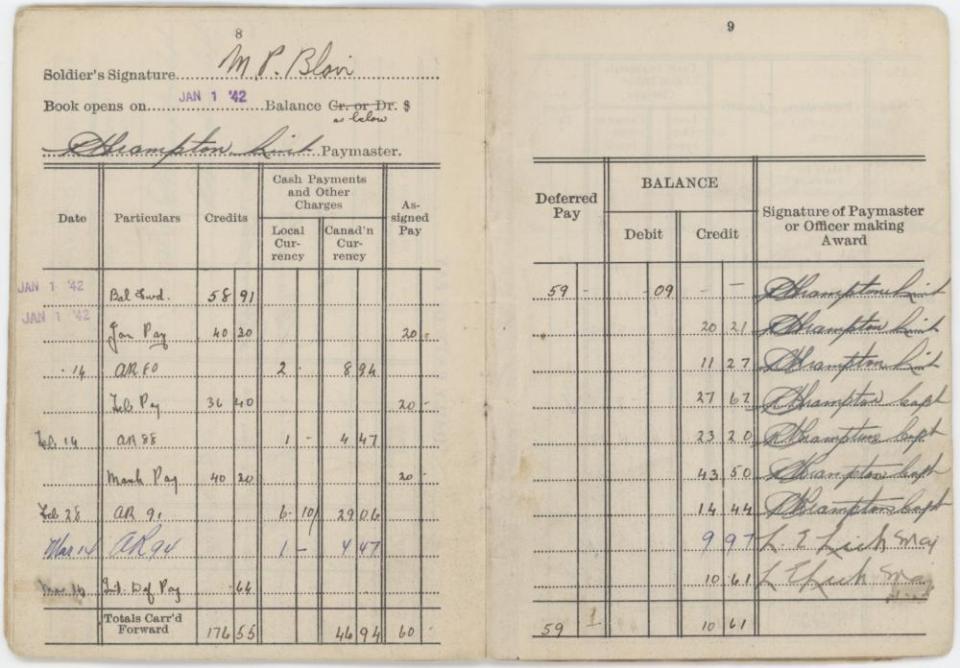 8
Soldier's Signature M. P. Blair
Book opens on JAN 1 '42 Balance Cr. or Dr. $
as below
Paymaster.
Date Particulars Credits Cash Payments and Other Charges As-signed Pay
Local Cur-rency Canad'n Cur-rency
JAN 1 '42 Bal Fwd. 58 91
JAN 1 '42 Jan Pay 40 30 20 -
" 14 AR 80 2 - 8 94
Feb Pay 36 40 20 -
Feb 14 AR 88 1 - 4 47
March Pay 40 20 -
Feb 28 AR 91 6 - 10/ 29 06
Mar 14 AR 94 1 - 4 47
Mar 16 Def Pay 64
Totals Carr'd Forward 176 55 46 94 60 -
9
Deferred Pay BALANCE Signature of Paymaster or Officer making Award
Debit Credit
59 - 09 - -
20 21
11 27
27 67 Capt
23 20 Capt
43 50 Capt
14 44 Capt
9 97 Maj
10 61 Maj
59 10 61